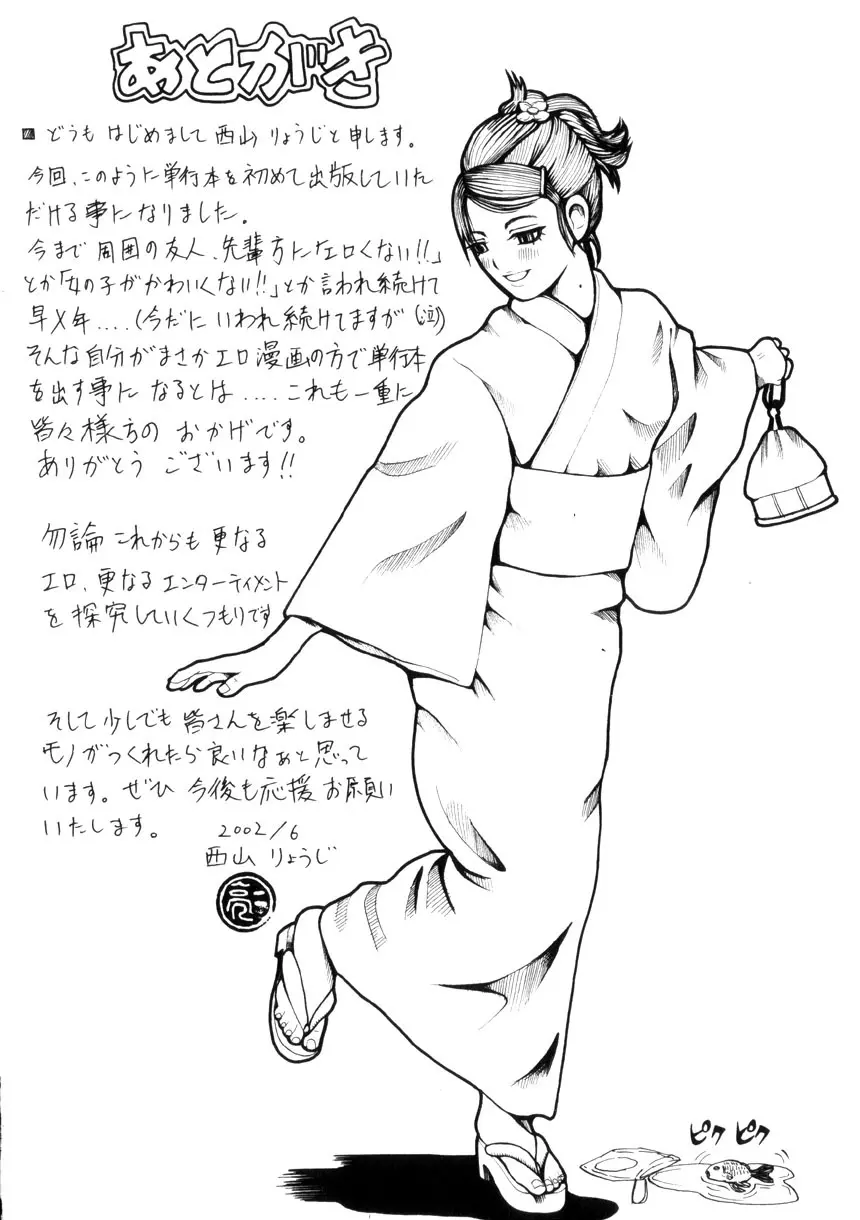 あとがき
どうも はじめまして 西山 りょうじと申します。
今回、このように単行本を初めて出版していた
だける事になりました。
今まで 周囲の友人、先輩方に「エロくない!!」
とか「女の子がかわいくない!!」とか言われ続けて
早〆年....(今だに いわれ続けてますが(泣))
そんな自分がまさかエロ漫画の方で単行本
を出す事に なるとは .... これも一重に
皆々様方の おかげです。
ありがとう ございます!!
勿論 これからも 更なる
エロ、更なる エンターティメント
を 探究していくつもりです
そして少しでも 皆さんを楽しませる
モノがつくれたら良いなぁと思って
います。ぜひ 今後も応援お願い
いたします。 2002/6
西山 りょうじ
亮二
ピク ピク